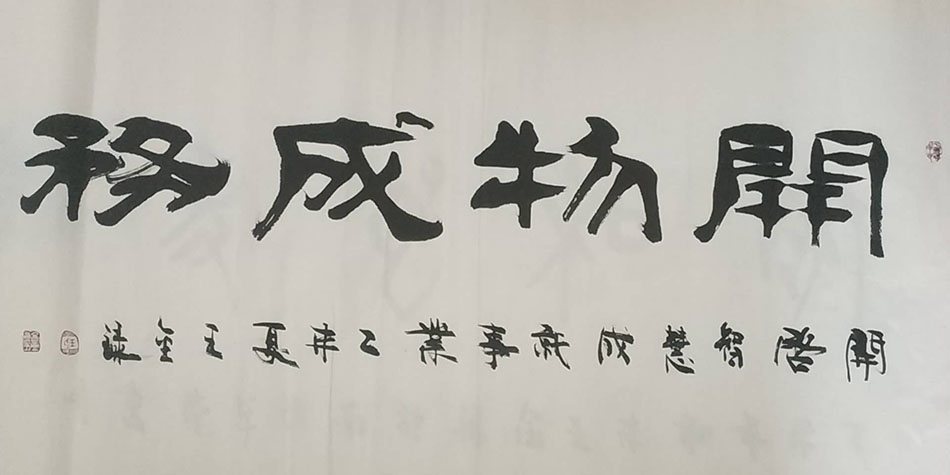 開物成務
開啓智慧成就事業乙未夏王金